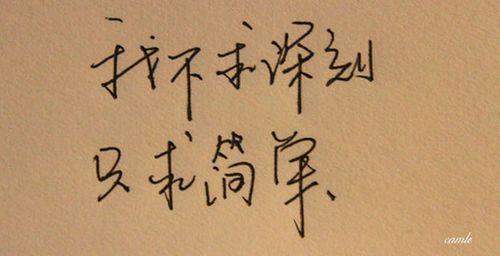 我不求深刻
只求简单.
camle